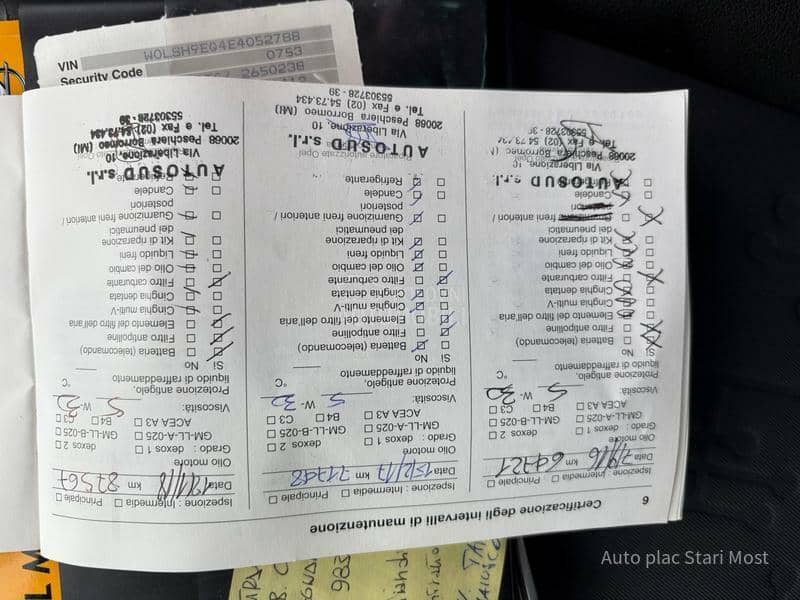 VIN W0LSH9EG4E4052788
Security Code 0753
6 Certificazione degli intervalli di manutenzione
Ispezione : Intermedia □ Principale □
Data 7/9/16 km 64721
Olio motore
Grado : dexos 1 □ dexos 2 □
GM-LL-A-025 □ GM-LL-B-025 □
ACEA A3 □ B4 □ C3 □
Viscosità: 5 W- 30
Protezione antigelo,
liquido di raffreddamento °C
Sì No
Batteria (telecomando)
Filtro antipolline
Elemento del filtro dell'aria
Cinghia multi-V
Cinghia dentata
Filtro carburante
Olio del cambio
Liquido freni
Kit di riparazione
dei pneumatici
Guarnizione freni anteriori /
posteriori
Candele
Refrigerante
AUTOSUD s.r.l.
Via Liberazione, 10
20068 Peschiera Borromeo (MI)
Tel. e Fax
55303728 - 39
Ispezione : Intermedia □ Principale □
Data 15/2/17 km 71748
Olio motore
Grado : dexos 1 □ dexos 2 □
GM-LL-A-025 □ GM-LL-B-025 □
ACEA A3 □ B4 □ C3 □
Viscosità: 5 W- 30
Protezione antigelo,
liquido di raffreddamento °C
Sì No
Batteria (telecomando)
Filtro antipolline
Elemento del filtro dell'aria
Cinghia multi-V
Cinghia dentata
Filtro carburante
Olio del cambio
Liquido freni
Kit di riparazione
dei pneumatici
Guarnizione freni anteriori /
posteriori
Candele
Refrigerante
AUTOSUD s.r.l.
Via Liberazione, 10
20068 Peschiera Borromeo (MI)
Tel. e Fax (02) 54.73.434
55303728 - 39
Ispezione : Intermedia □ Principale □
Data km 87567
Olio motore
Grado : dexos 1 □ dexos 2 □
GM-LL-A-025 □ GM-LL-B-025 □
ACEA A3 □ B4 □ C3 □
Viscosità: 5 W- 30
Protezione antigelo,
liquido di raffreddamento °C
Sì No
Batteria (telecomando)
Filtro antipolline
Elemento del filtro dell'aria
Cinghia multi-V
Cinghia dentata
Filtro carburante
Olio del cambio
Liquido freni
Kit di riparazione
dei pneumatici
Guarnizione freni anteriori /
posteriori
Candele
Refrigerante
AUTOSUD s.r.l.
Via Liberazione, 10
20068 Peschiera Borromeo (MI)
Tel. e Fax (02) 54.73.434
55303728 - 39
Auto plac Stari Most